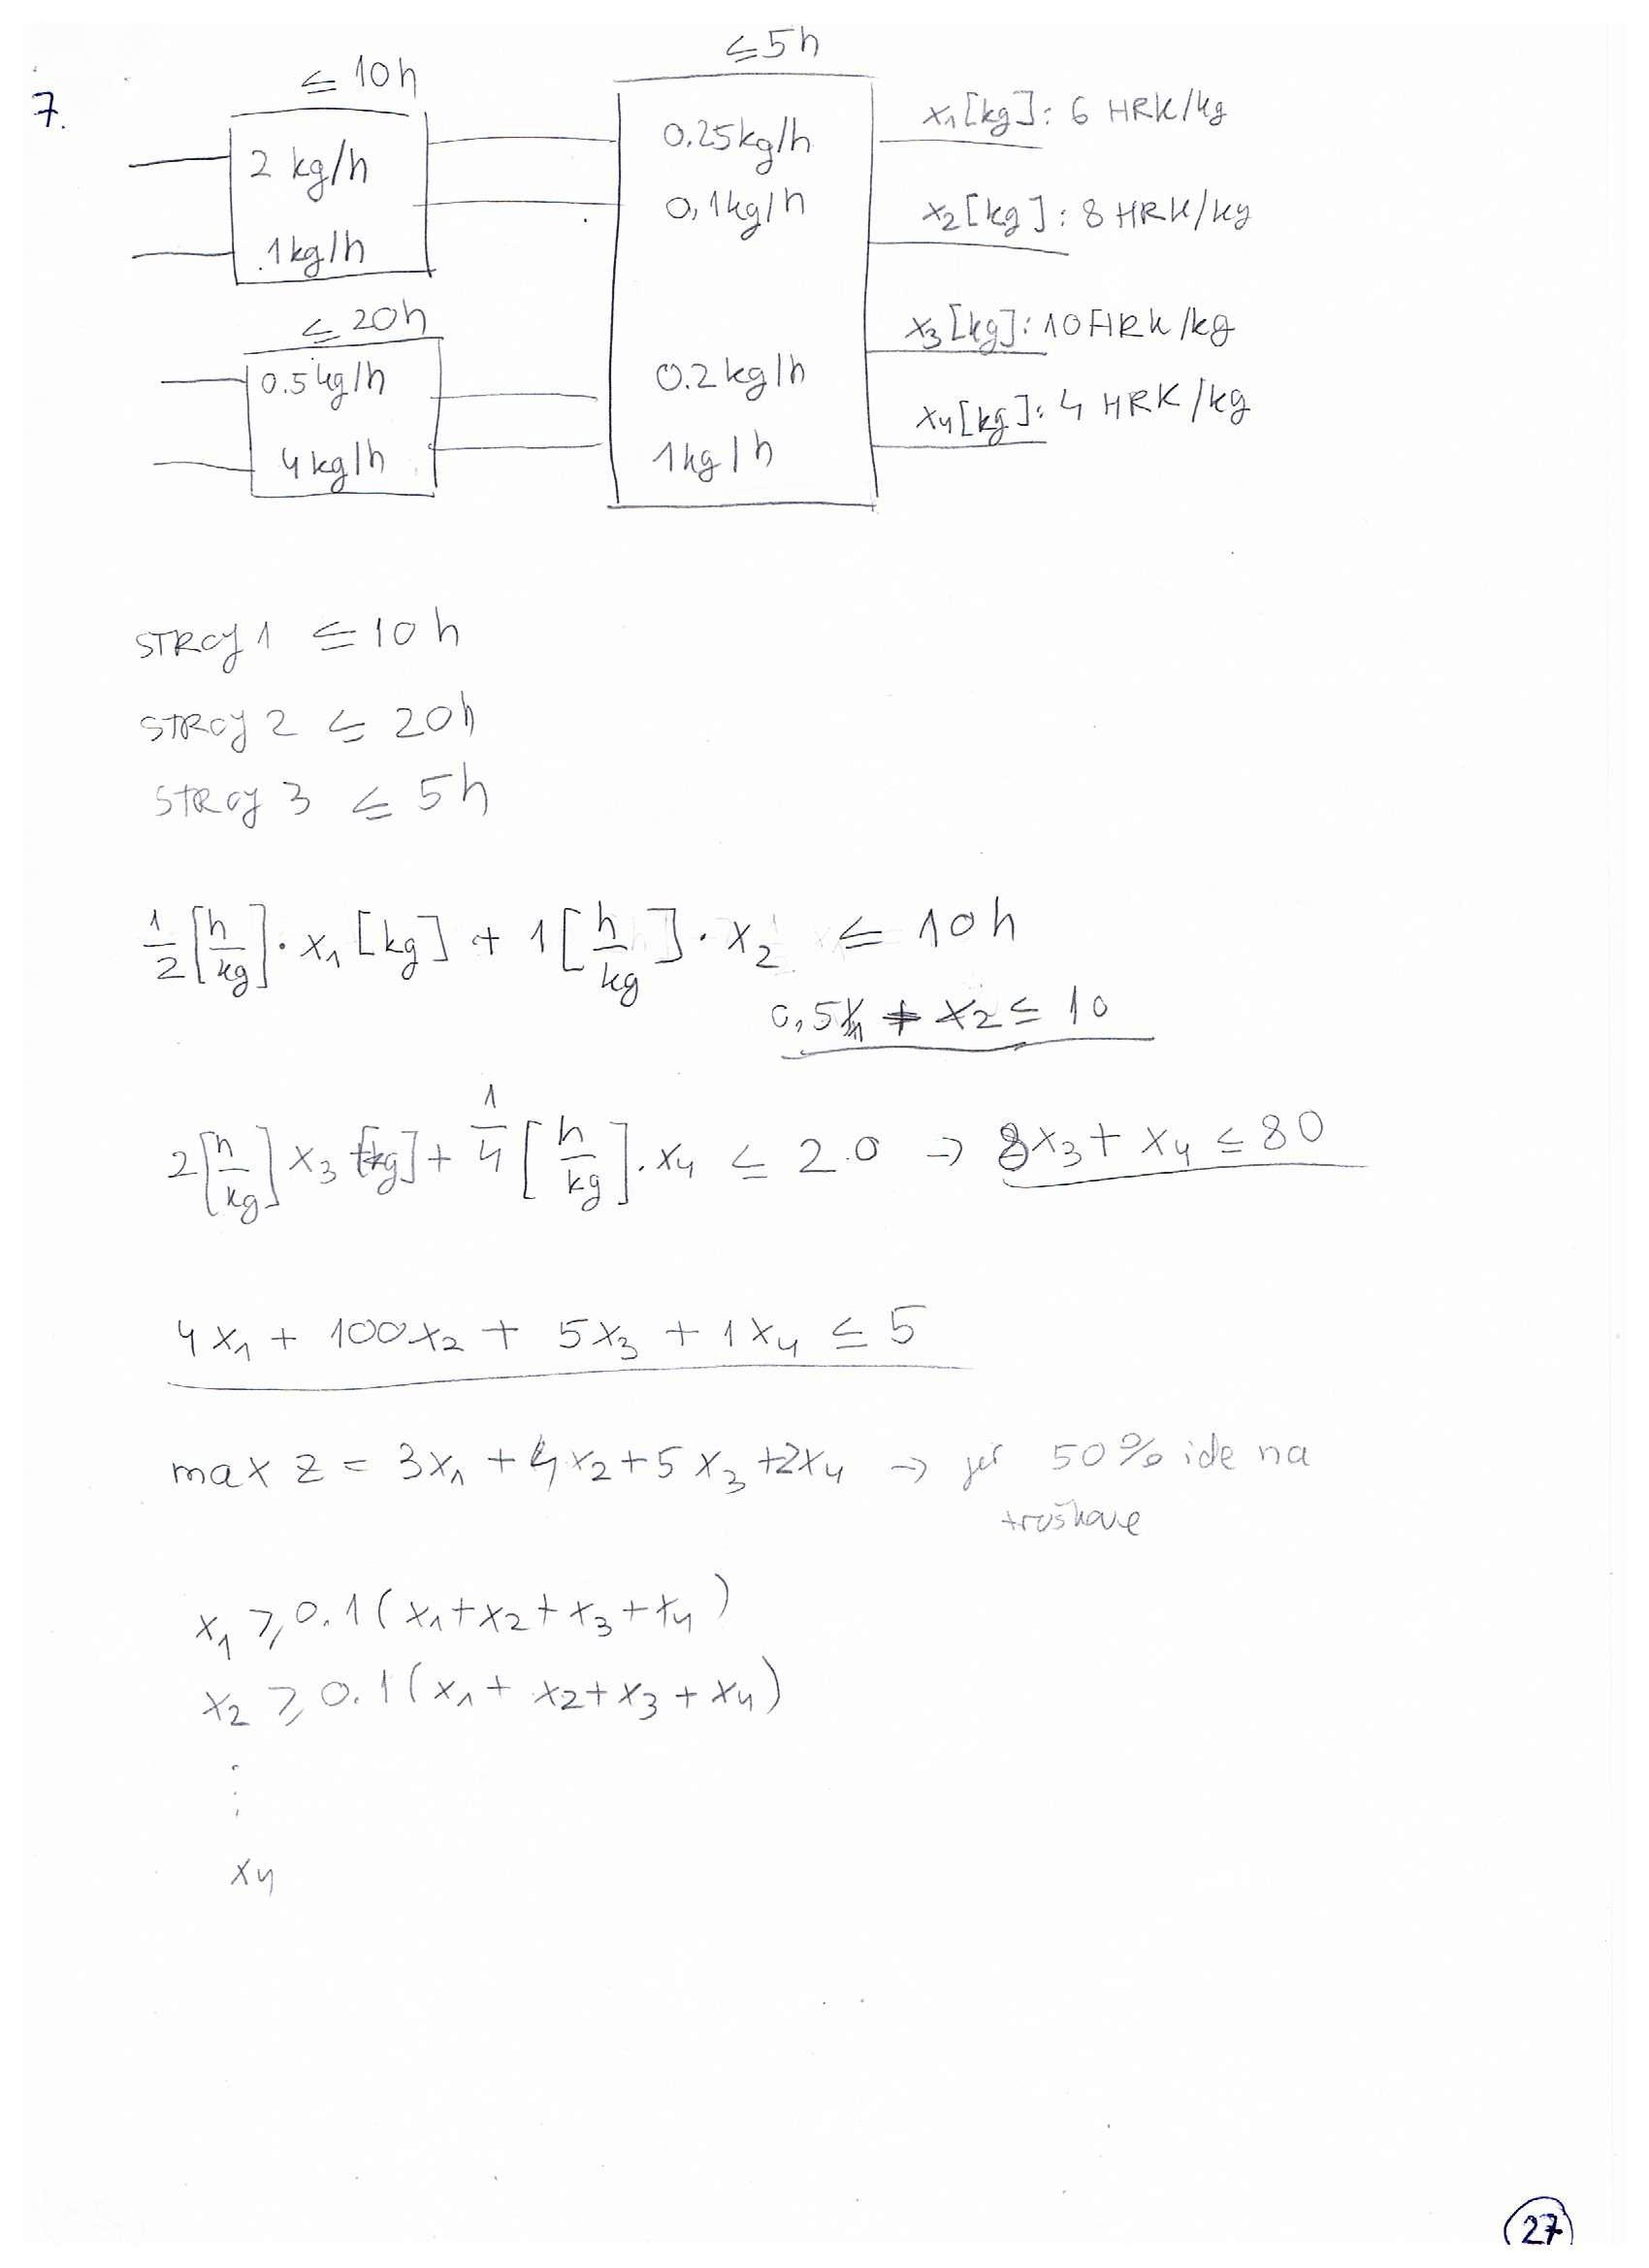 ≤ 10h
≤5h
7.
2 kg/h
0.25kg/h
x₁[kg]: 6 HRK/kg
1kg/h
0,1kg/h
x₂[kg]: 8 HRK/kg
≤ 20h
x₃[kg]: 10 HRK/kg
0.5kg/h
0.2kg/h
x₄[kg]: 4 HRK/kg
4kg/h
1kg/h
STROJ 1 ≤ 10 h
STROJ 2 ≤ 20h
STROJ 3 ≤ 5h
1/2 [h/kg] · x₁ [kg] + 1 [h/kg] · x₂ ≤ 10h
0,5x₁ + x₂ ≤ 10
2 [h/kg] x₃ [kg] + 1/4 [h/kg] · x₄ ≤ 20 → 8x₃ + x₄ ≤ 80
4x₁ + 100x₂ + 5x₃ + 1x₄ ≤ 5
max z = 3x₁ + 4x₂ + 5x₃ + 2x₄ → jer 50% ide na
troškove
x₁ ≥ 0.1(x₁+x₂+x₃+x₄)
x₂ ≥ 0.1(x₁+x₂+x₃+x₄)
⋮
x₄
27